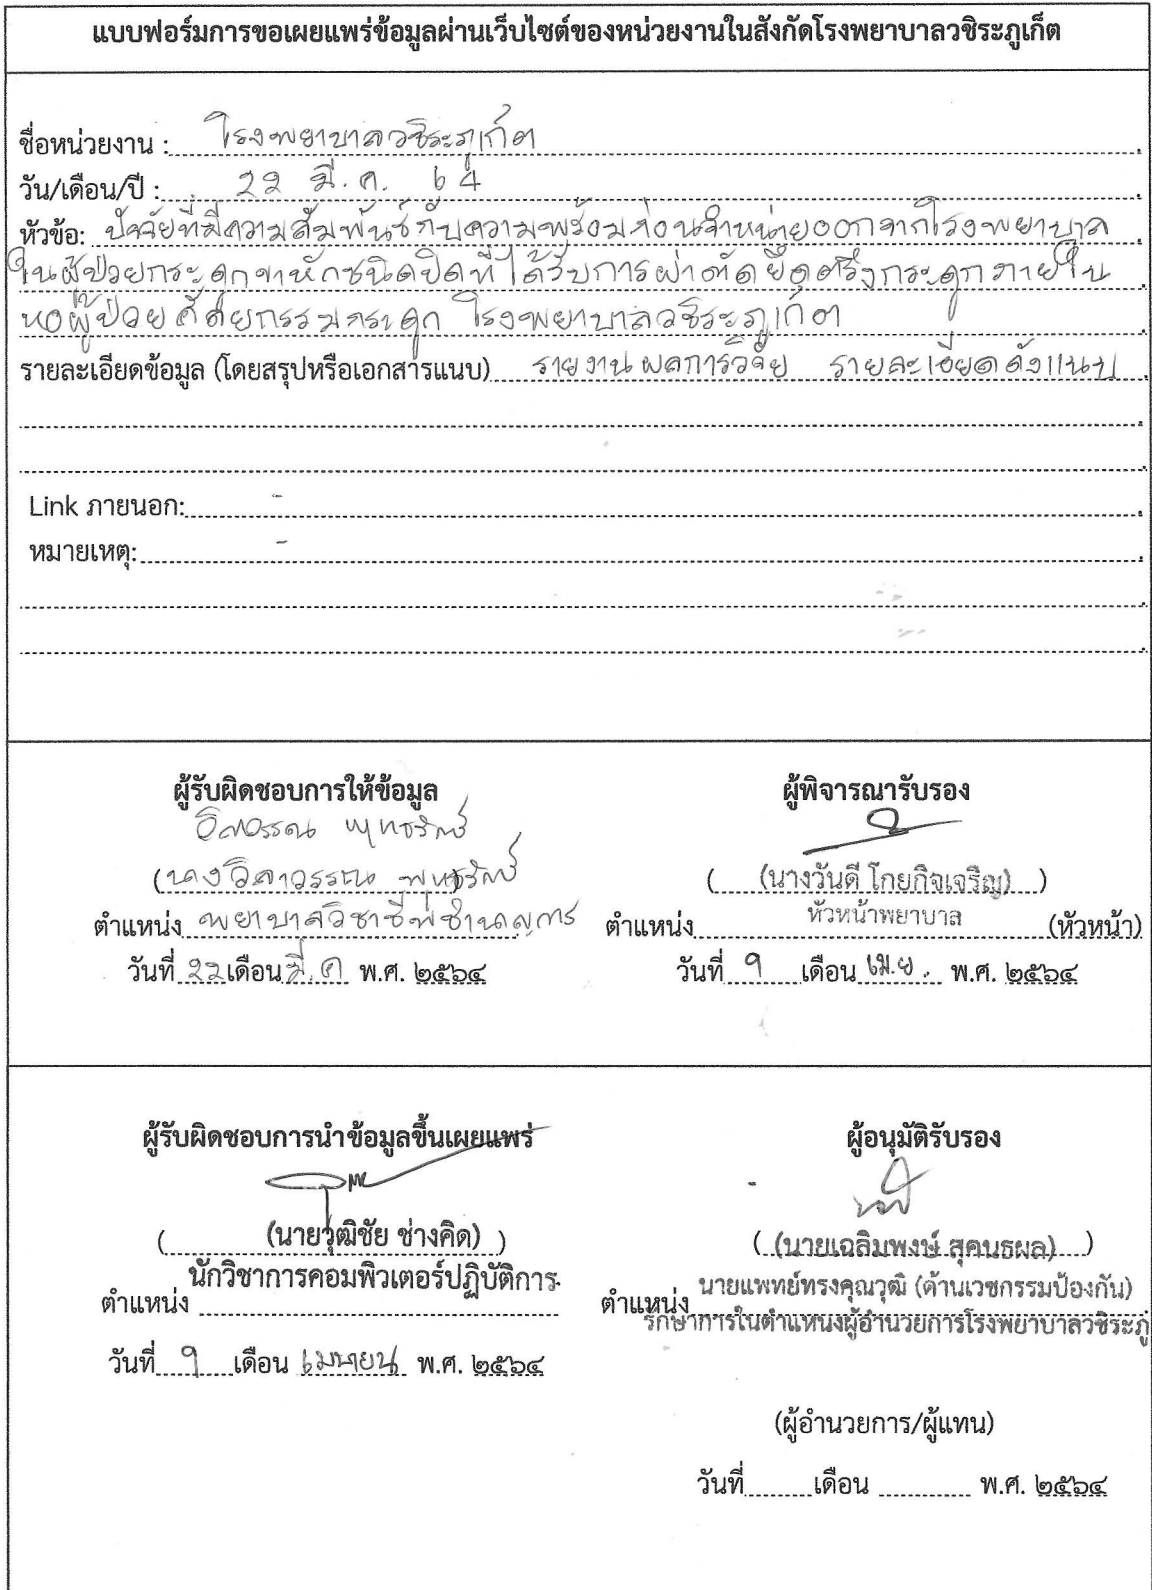 แบบฟอร์มการขอเผยแพร่ข้อมูลผ่านเว็บไซต์ของหน่วยงานในสังกัดโรงพยาบาลวชิระภูเก็ต
ชื่อหน่วยงาน : โรงพยาบาลวชิระภูเก็ต
วัน/เดือน/ปี : 22 มี.ค. 64
หัวข้อ: ปัจจัยที่มีความสัมพันธ์กับความพร้อมก่อนจำหน่ายออกจากโรงพยาบาล
ในผู้ป่วยกระดูกขาหักชนิดปิดที่ได้รับการผ่าตัดยึดตรึงกระดูกภายใน
หอผู้ป่วยศัลยกรรมกระดูก โรงพยาบาลวชิระภูเก็ต
รายละเอียดข้อมูล (โดยสรุปหรือเอกสารแนบ) รายงานผลการวิจัย รายละเอียดดังแนบ
Link ภายนอก: -
หมายเหตุ: -
ผู้รับผิดชอบการให้ข้อมูล
วิลาวรรณ พุทธรักษ์
(นางวิลาวรรณ พุทธรักษ์)
ตำแหน่ง พยาบาลวิชาชีพชำนาญการ
วันที่ 22 เดือน มี.ค. พ.ศ. ๒๕๖๔
ผู้พิจารณารับรอง
( (นางวันดี โกยกิจเจริญ) )
ตำแหน่ง หัวหน้าพยาบาล (หัวหน้า)
วันที่ ๑ เดือน เม.ย. พ.ศ. ๒๕๖๔
ผู้รับผิดชอบการนำข้อมูลขึ้นเผยแพร่
( (นายวุฒิชัย ช่างคิด) )
ตำแหน่ง นักวิชาการคอมพิวเตอร์ปฏิบัติการ
วันที่ ๑ เดือน เมษายน พ.ศ. ๒๕๖๔
ผู้อนุมัติรับรอง
( (นายเฉลิมพงษ์ สุคนธผล) )
ตำแหน่ง นายแพทย์ทรงคุณวุฒิ (ด้านเวชกรรมป้องกัน)
รักษาการในตำแหน่งผู้อำนวยการโรงพยาบาลวชิระภู
(ผู้อำนวยการ/ผู้แทน)
วันที่ เดือน พ.ศ. ๒๕๖๔